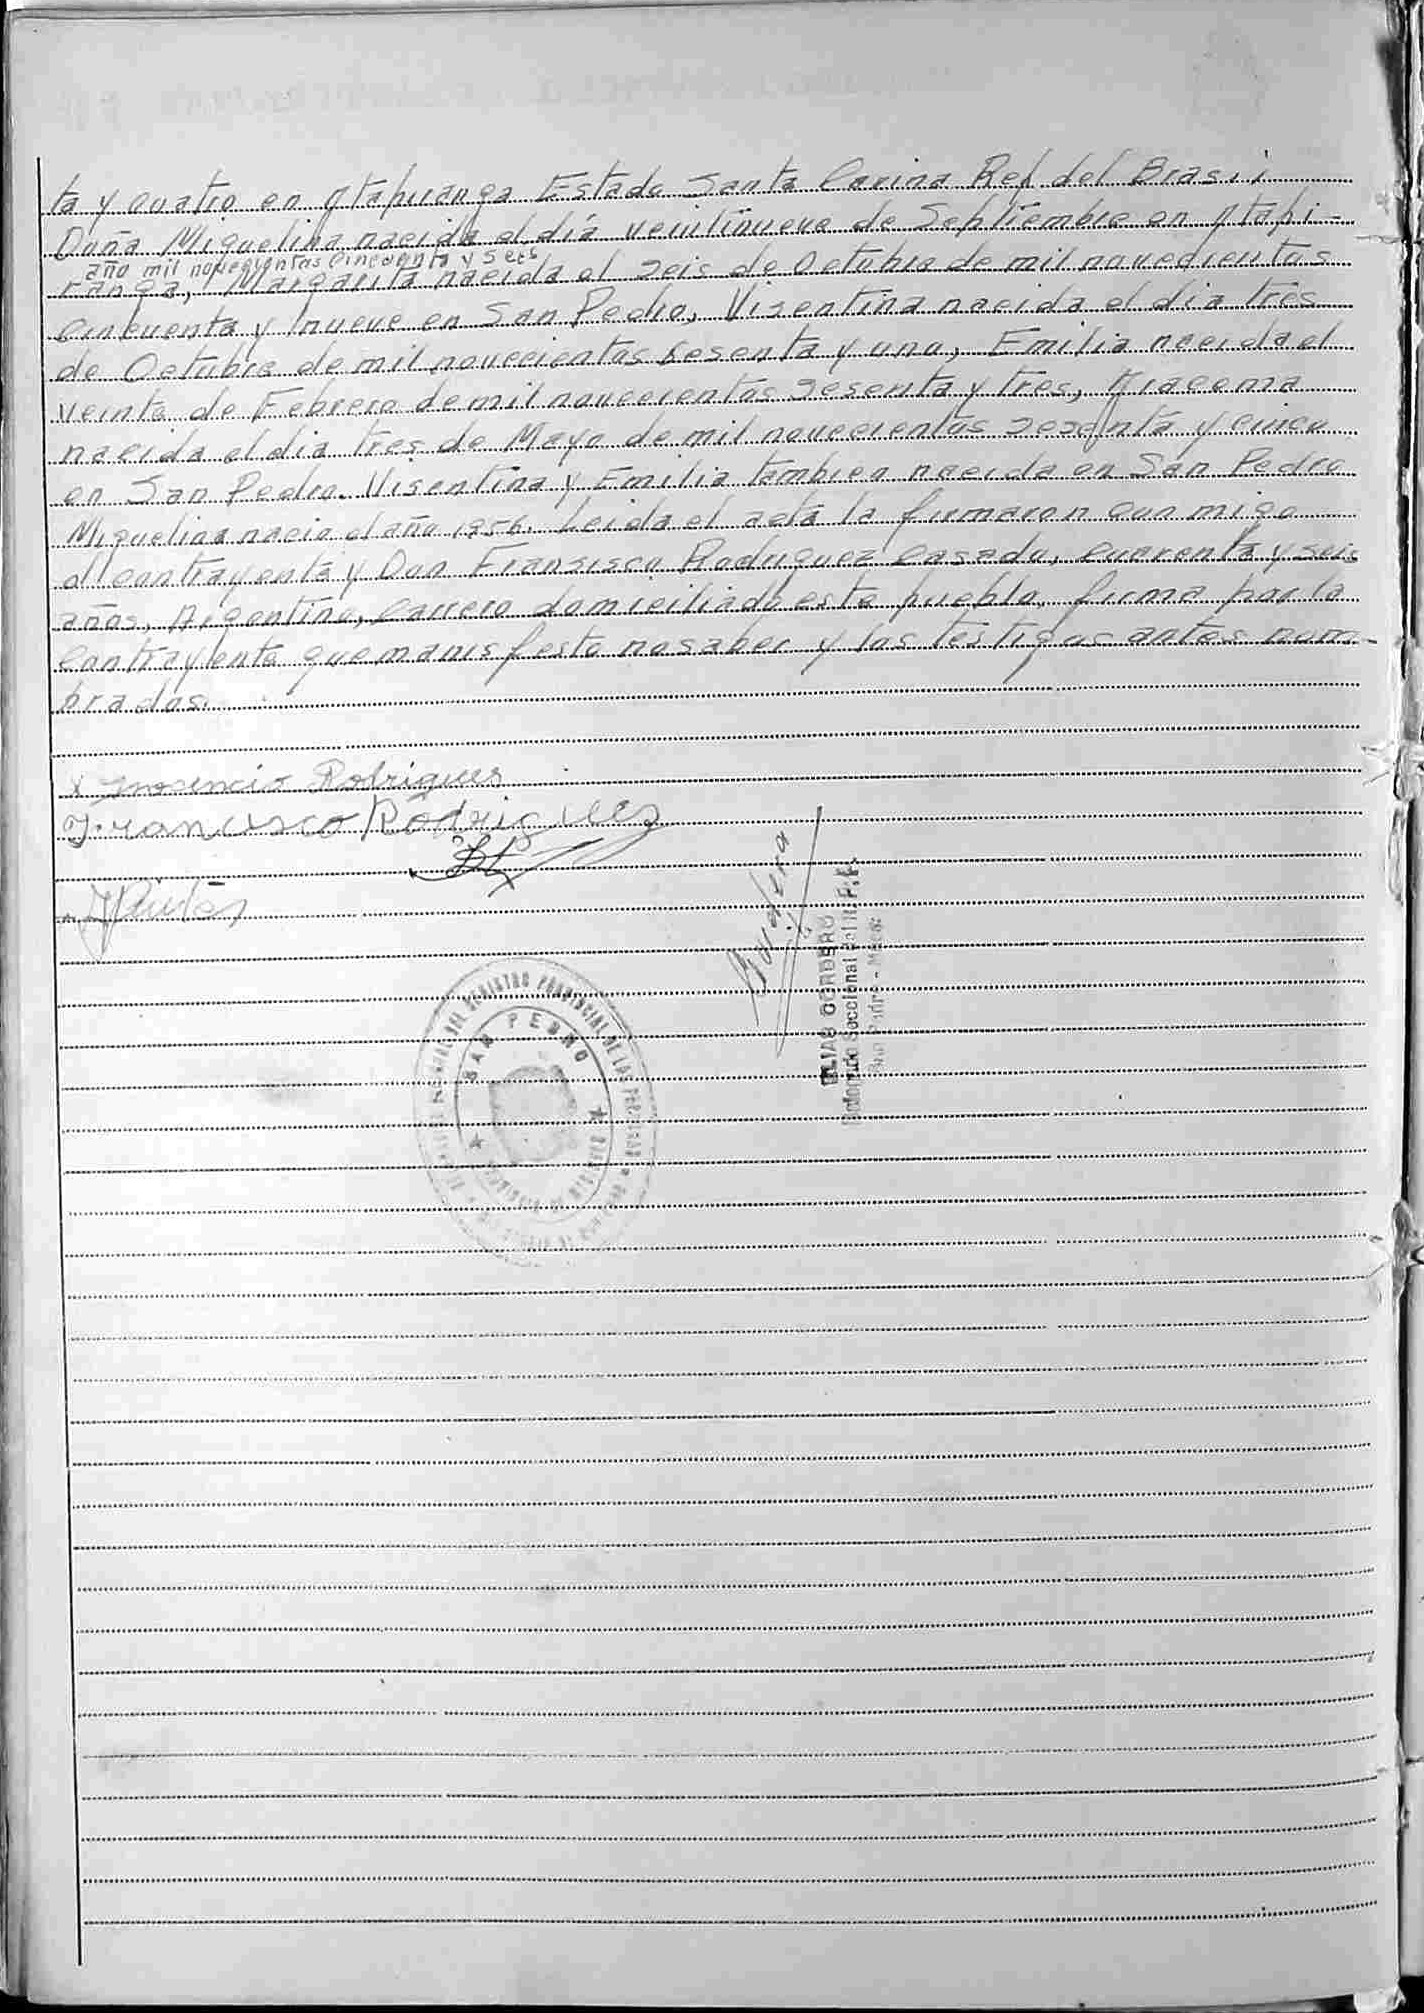 ta y cuatro en Itapiranga Estado Santa Carina Rep. del Brasil
Doña Miguelina nacida el día veintinueve de Septiembre en Itapi-
año mil novecientos cincuenta y seis
ranga, Margarita nacida el seis de Octubre de mil novecientos
cincuenta y nueve en San Pedro, Visentina nacida el dia tres
de Octubre de mil novecientos sesenta y uno, Emilia nacida el
veinte de Febrero de mil novecientos sesenta y tres,
nacida el dia tres de Mayo de mil novecientos sesenta y cinco
en San Pedro. Visentina y Emilia tambien nacida en San Pedro
Miguelina nacio el año 1956. Leida el acta la firmaron con migo
el contrayente y Don Fransisco Rodriguez Casado, cuarenta y seis
años, Argentino, Carrero domiciliado este pueblo, firma por la
Contrayente que manisfesto no saber y los testigos antes nom-
brados.
x Inosencio Rodrigues
Francisco Rodriguez
ELIAS CORDERO
Delegado Seccional del R.P.P.
San Pedro - Mnes.
REGISTRO PROVINCIAL DE LAS PERSONAS
SAN PEDRO